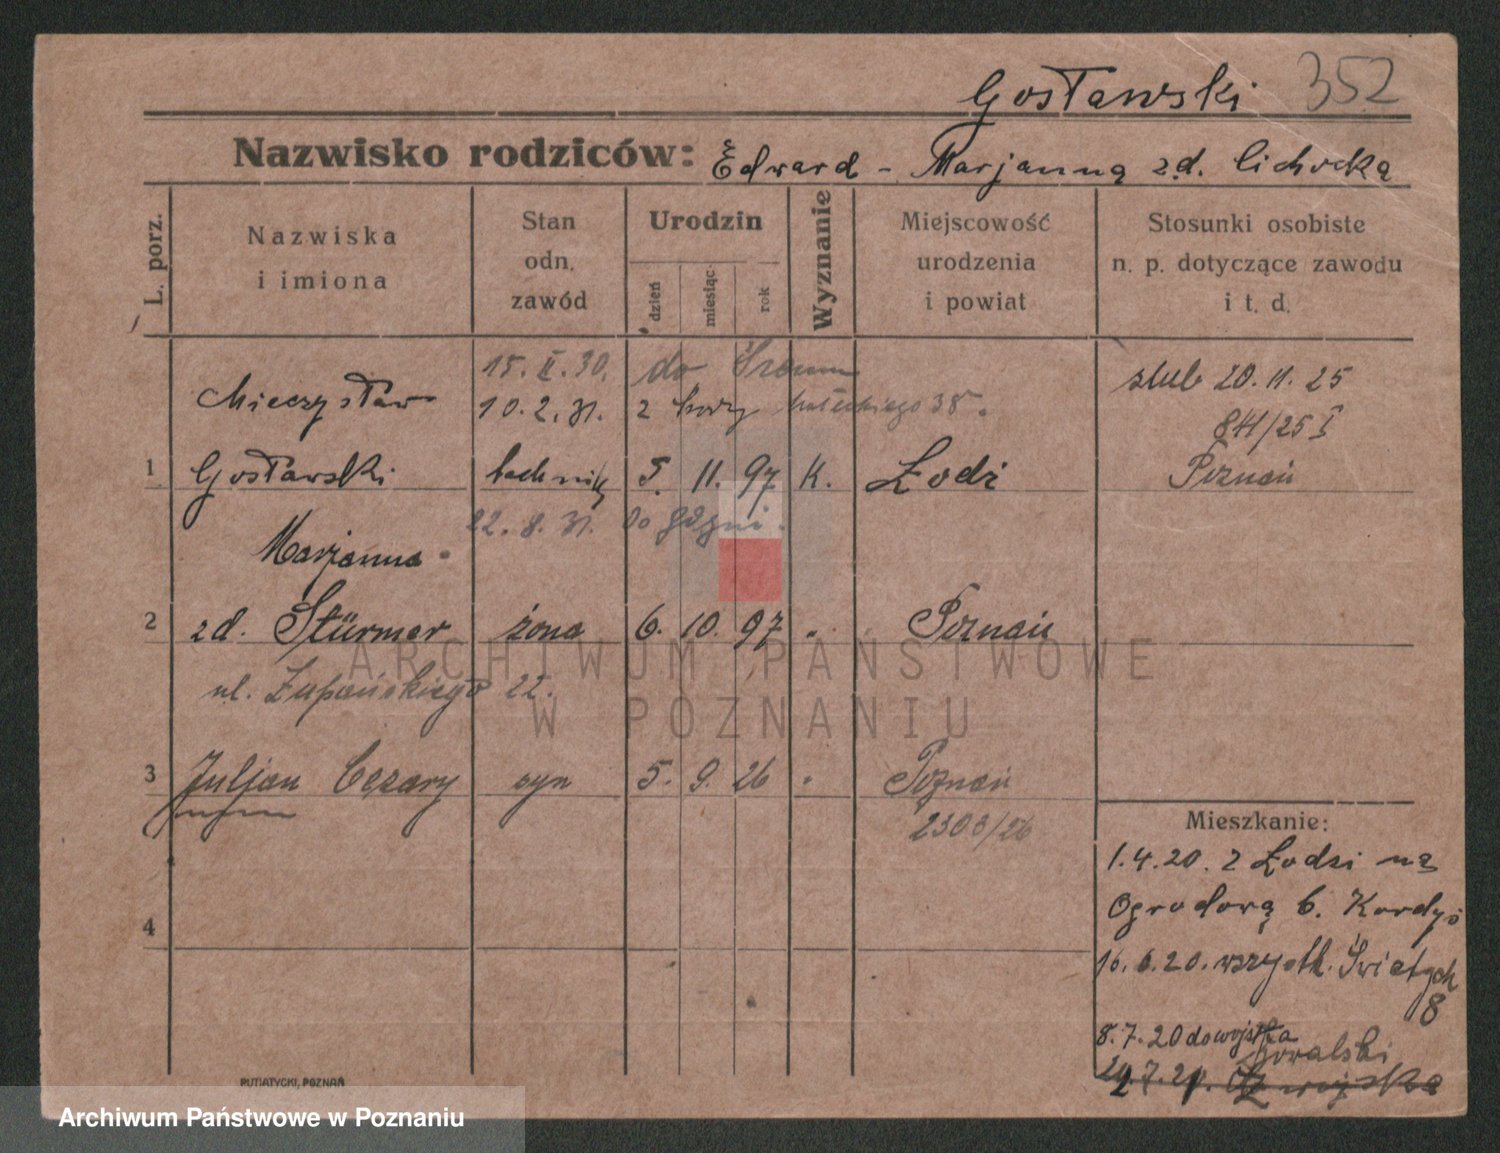 Gosławski 352
Nazwisko rodziców: Edward - Marjanna zd. Cichocka
L. porz.
Nazwiska
i imiona
Stan
odn.
zawód
Urodzin
dzień
miesiąc
rok
Wyznanie
Miejscowość
urodzenia
i powiat
Stosunki osobiste
n. p. dotyczące zawodu
i t. d.
15. II. 30. do Śremu
Mieczysław
10. 2. 31. z
38.
ślub 20. 11. 25
841/25 I
1 Gosławski technik 5. 11. 97 K. Łodzi Poznań
22. 8. 31. do Gdyni.
Marjanna
2 zd. Stürmer żona 6. 10. 97 " Poznań
ul. Żupańskiego 22.
3 Juljan Cezary syn 5. 9. 26 " Poznań
2303/26
4
Mieszkanie:
1. 4. 20. z Łodzi na
Ogrodową 6. Kordyś
16. 6. 20. wszystk. Świętych
8
8. 7. 20 do wojska
Kowalski
PUTIATYCKI, POZNAŃ
ARCHIWUM PAŃSTWOWE
W POZNANIU
Archiwum Państwowe w Poznaniu